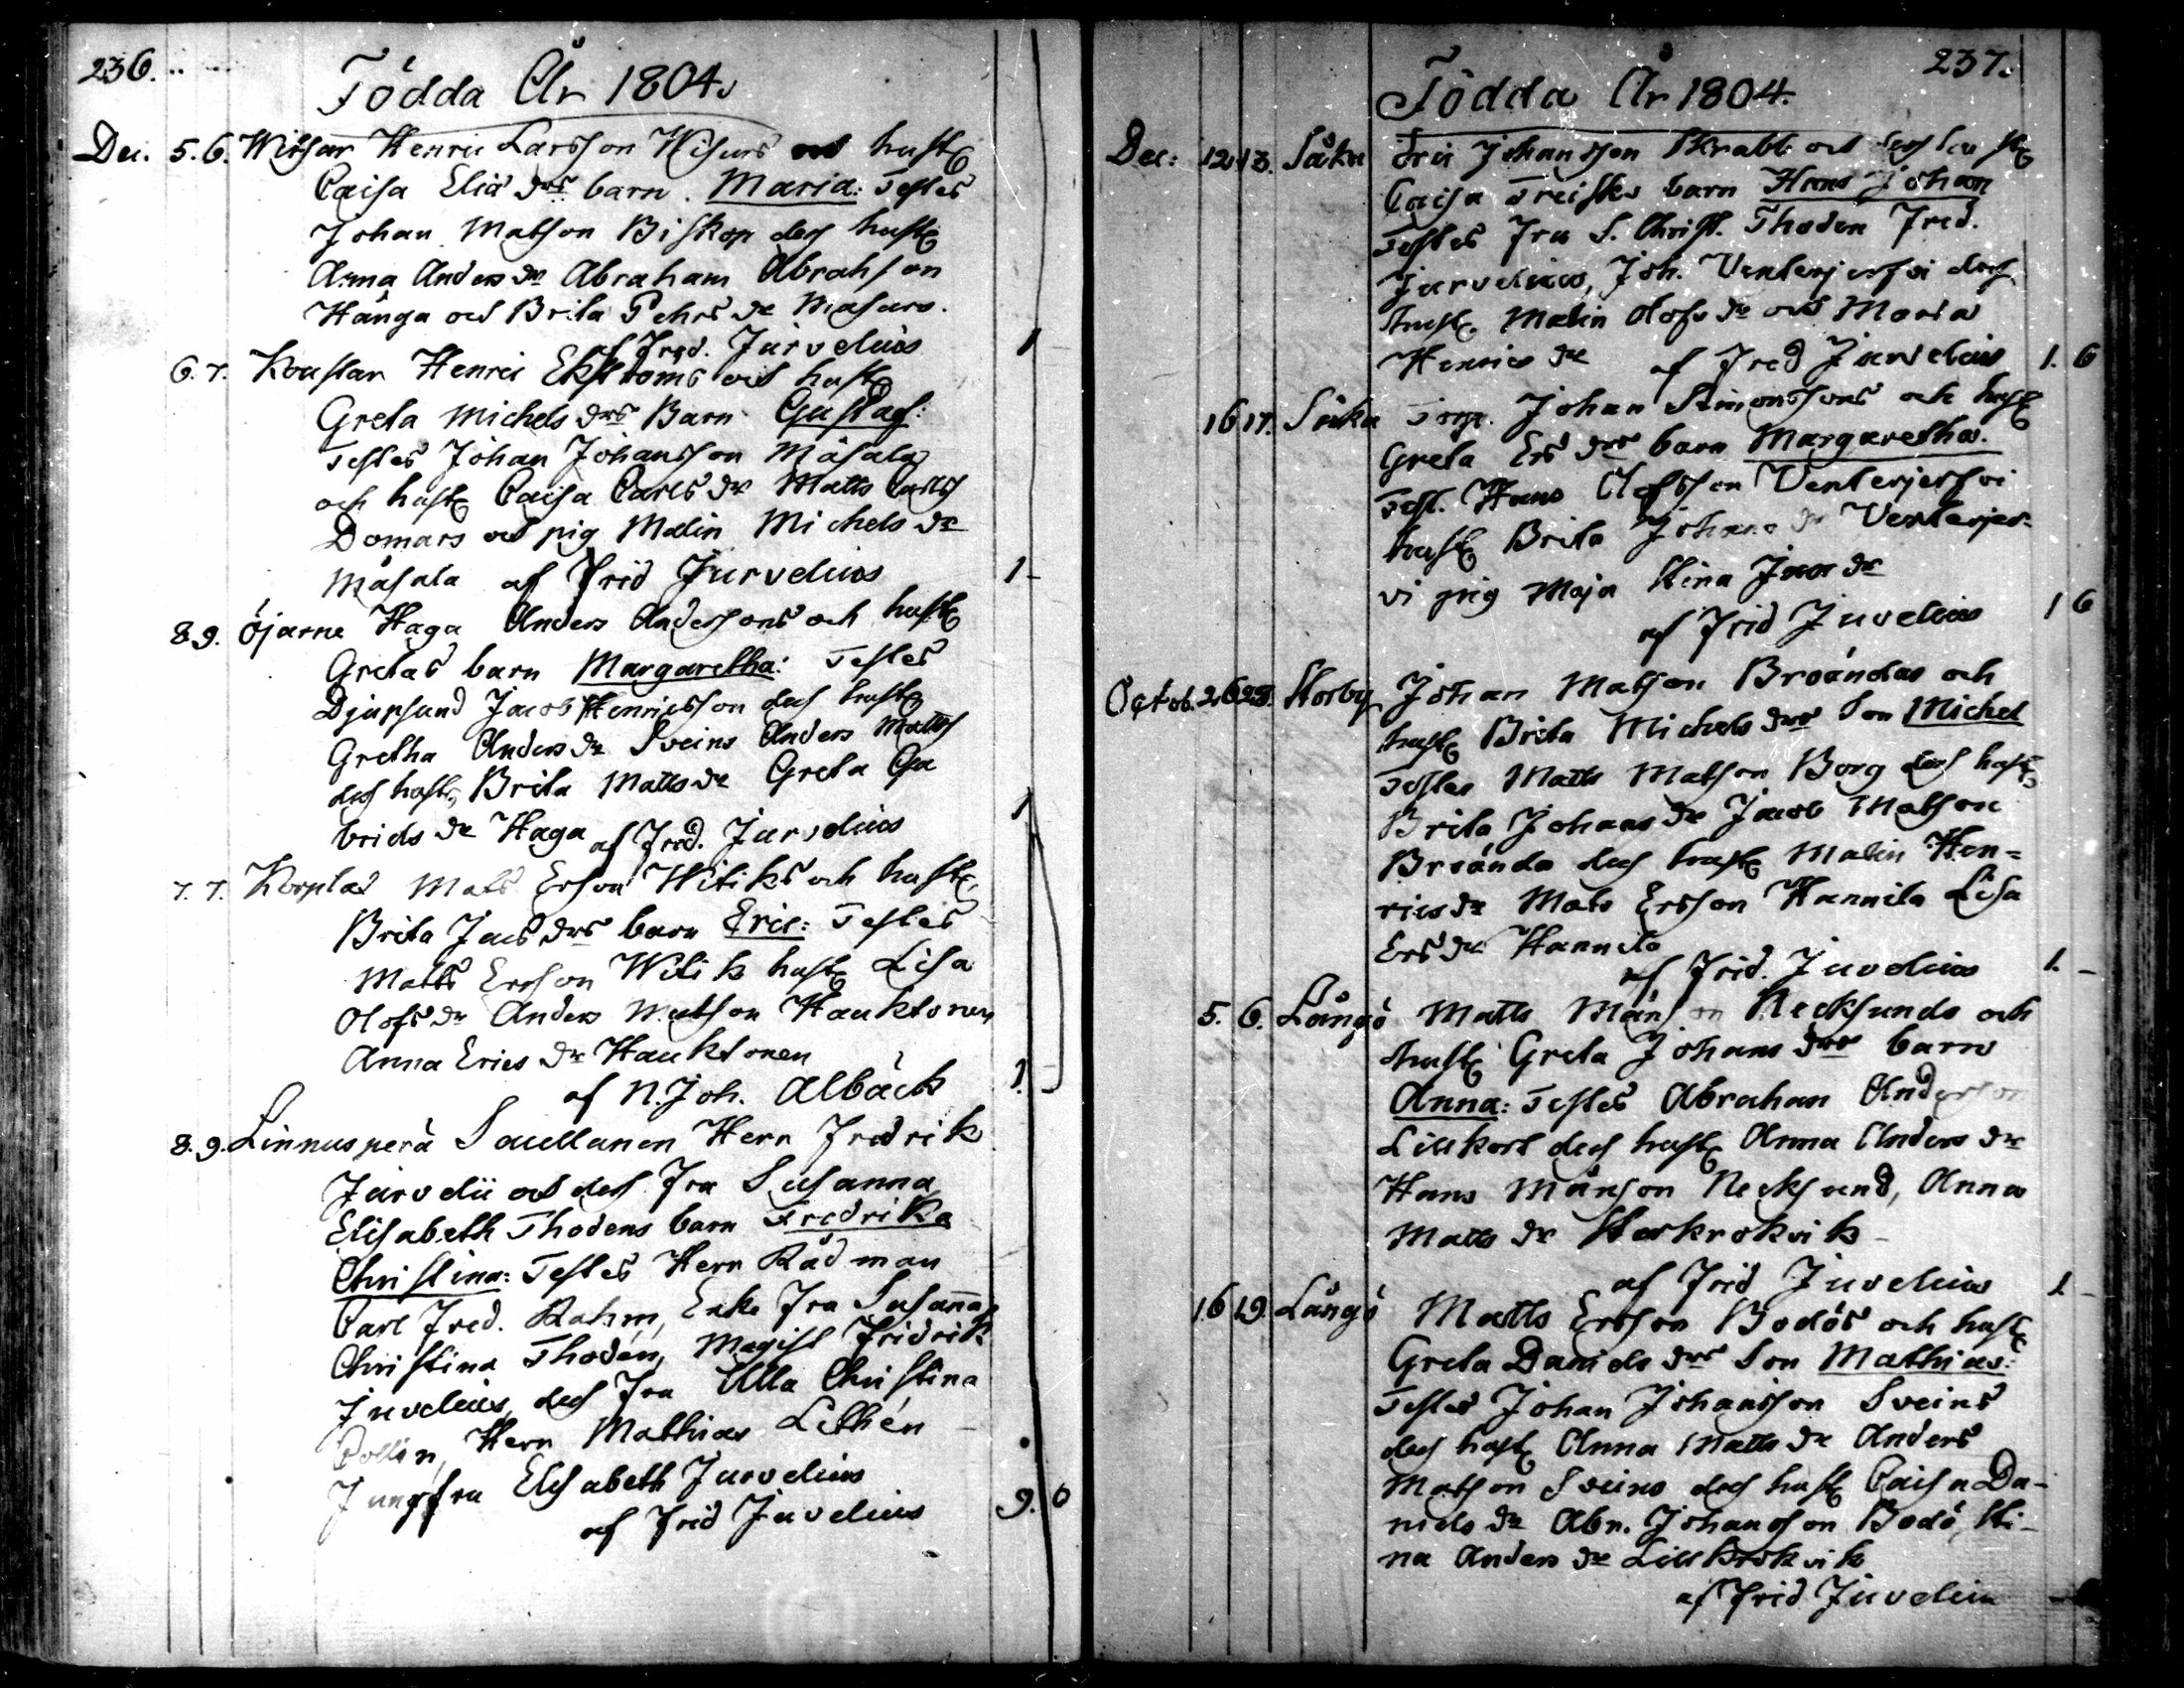 236.
Födda År 1804.
Dec. 5. 6. Wihsar Henric Larsson Wisurs och hust
Caisa Eliæ drs barn. Maria: Testes
Johan Matson Biskop des hust
Anna Anders dr Abraham Abrahson
Hånga och Brita Pehrs dr Masurs.
af Fred. Juvelius 1
6. 7. Kouslar Henric Ekströms och hust
Greta Michels drs Barn Gustaf:
Testes Johan Johansson Måsala
och hust Caisa Carls dr Matts Carlss
Domars och pig Malin Michels dr
Måsala af Frid Juvelius 1-
8. 9. Öjarne Haga Anders Anderssons och hust
Gretas barn Margaretha: Testes
Djupsund Jacob Henricsson des hust
Gretha Anders dr Sveins Anders Matts
des hust Brita Matts dr Greta Ga
briels dr Haga af Fred. Juvelius 1
7. 7. Korplax Mats Ersson Witiks och hust
Brita Jacs drs barn Eric: Testes
Matts Ersson Witik hust Lisa
Olofs dr Anders Matson Hauktonen
Anna Erics dr Hauktonen
af N. Joh. Albäck 1.-
8. 9. Linnusperä Sauellanen Herr Fredrik
Juvelii och des Fru Susanna
Elisabeth Thodens barn Fredrika
Christina: Testes Herr Rådman
Carl Fred. Rahm, Enke Fru Susanna
Christina Thodén, Magist Fridrik
Juvelius, des Fru Ulla Christina
Collin, Herr Mathias Lithén
Jungfru Elisabeth Juvelius
af Frid Juvelius 9. 6
237.
Födda År 1804.
Dec: 12 13. Såka Eric Johansson Skrabb och des hust
Caisa Freisks barn Hans Johan
Testes Fru S. Christ. Thoden Fred.
Juvelius, Joh. Venterjerfvi des
hust. Malin Olofs dr och Maria
Henrics dr af Fred Juvelius 1. 6
16 17. Såka Torp. Johan Simonssons och hust
Greta Ers drs barn Margaretha.
Test. Hans Olofsson Venterjerfvi
hust Brita Johans dr Venterjer-
vi pig Maja Stina Jacos dr
af Frid Juvelius 1 6
Octob. 26 28. Storby Johan Matson Broändas och
hust Brita Michels drs Son Michel
Testes Matts Matson Borg des hust
Brita Johans dr Jacob Matson
Broända des hust Malin Hen=
rics dr Mats Ersson Hannila Lisa
Ers dr Hannila
af Frid. Juvelius 1. -
5. 6. Långö Matts Månson Necksunds och
hust Greta Johans drs barn
Anna: Testes Abraham Anderson
Lillkors des hust Anna Anders dr
Hans Månson Necksund, Anna
Matts dr Storkrokvik -
af Frid Juvelius 1 -
16 19. Långö Matts Ersson Bodös och hust
Greta Daniels drs Son Mathias:
Testes Johan Johansson Sveins
des hust Anna Matts dr Anders
Matson Sveins des hust Caisa Da-
niels dr Abr. Johansson Bodö Sti-
na Anders dr Lillkrokvik
af Frid Juvelius